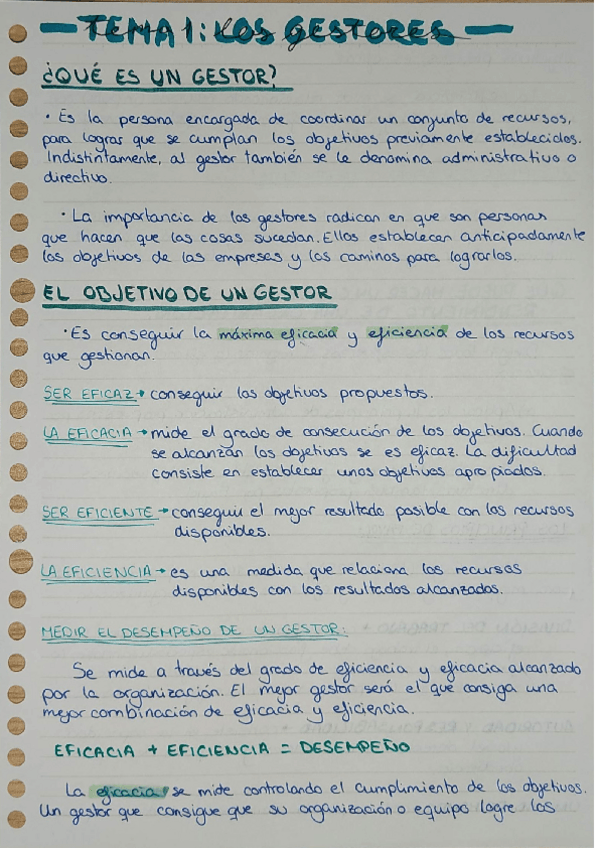 TEMA 1: LOS GESTORES
¿QUÉ ES UN GESTOR?
· Es la persona encargada de coordinar un conjunto de recursos,
para lograr que se cumplan los objetivos previamente establecidos.
Indistintamente, al gestor también se le denomina administrativo o
directivo.
· La importancia de los gestores radican en que son personas
que hacen que las cosas sucedan. Ellos establecen anticipadamente
los objetivos de las empresas y los caminos para lograrlos.
EL OBJETIVO DE UN GESTOR
· Es conseguir la máxima eficacia y eficiencia de los recursos
que gestionan.
SER EFICAZ → conseguir los objetivos propuestos.
LA EFICACIA → mide el grado de consecución de los objetivos. Cuando
se alcanzan los objetivos se es eficaz. La dificultad
consiste en establecer unos objetivos apropiados.
SER EFICIENTE → conseguir el mejor resultado posible con los recursos
disponibles.
LA EFICIENCIA → es una medida que relaciona los recursos
disponibles con los resultados alcanzados.
MEDIR EL DESEMPEÑO DE UN GESTOR:
Se mide a través del grado de eficiencia y eficacia alcanzado
por la organización. El mejor gestor será el que consiga una
mejor combinación de eficacia y eficiencia.
EFICACIA + EFICIENCIA = DESEMPEÑO
La eficacia se mide controlando el cumplimiento de los objetivos.
Un gestor que consigue que su organización o equipo logre los